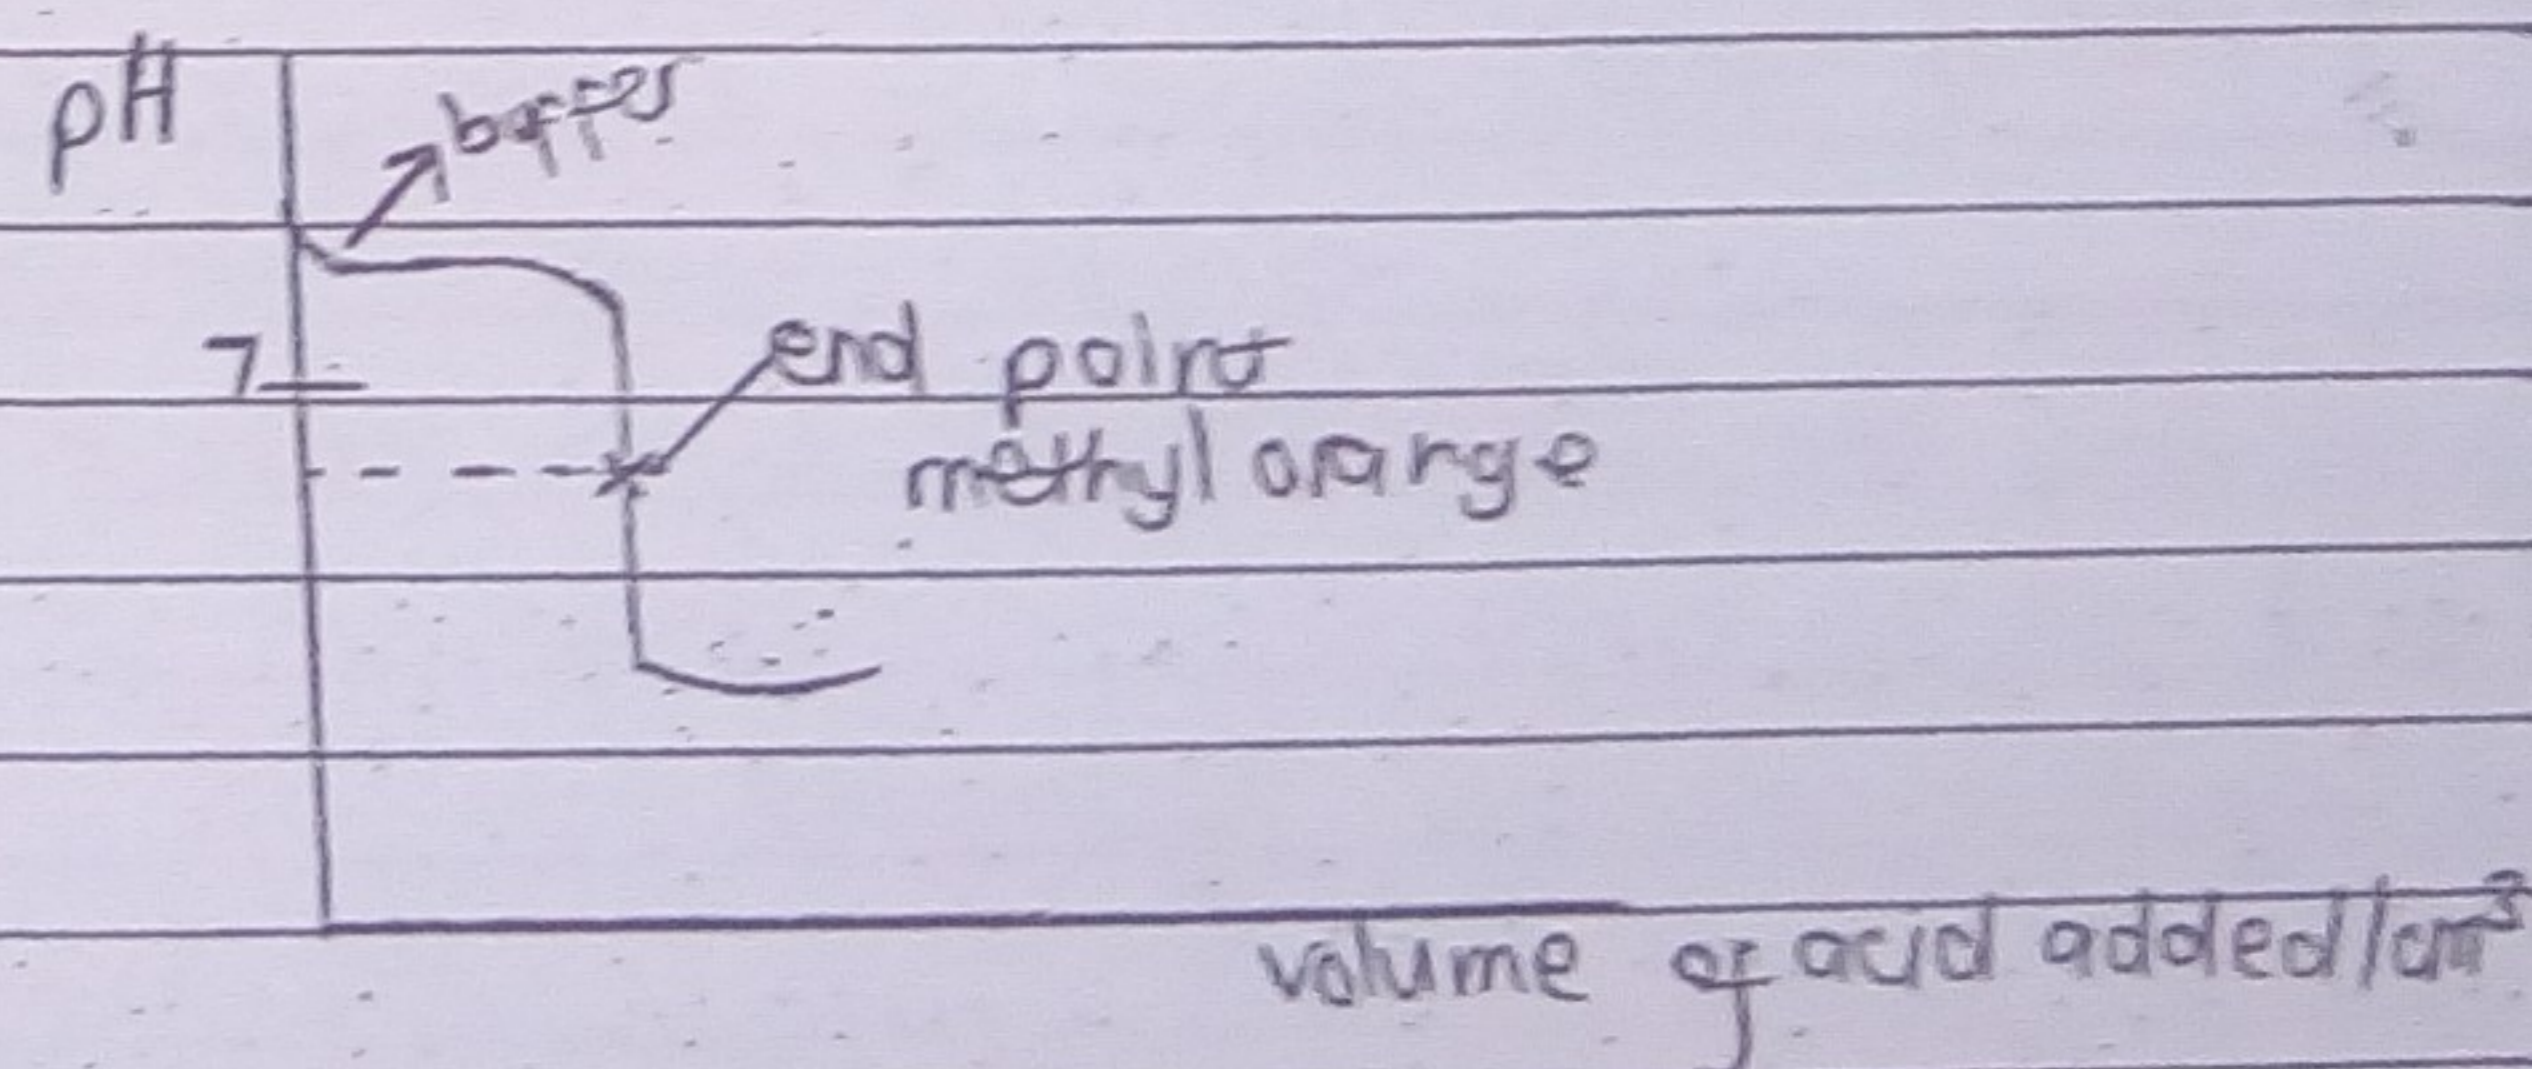 pH
buffer
7
end point
methyl orange
volume of acid added/cm³